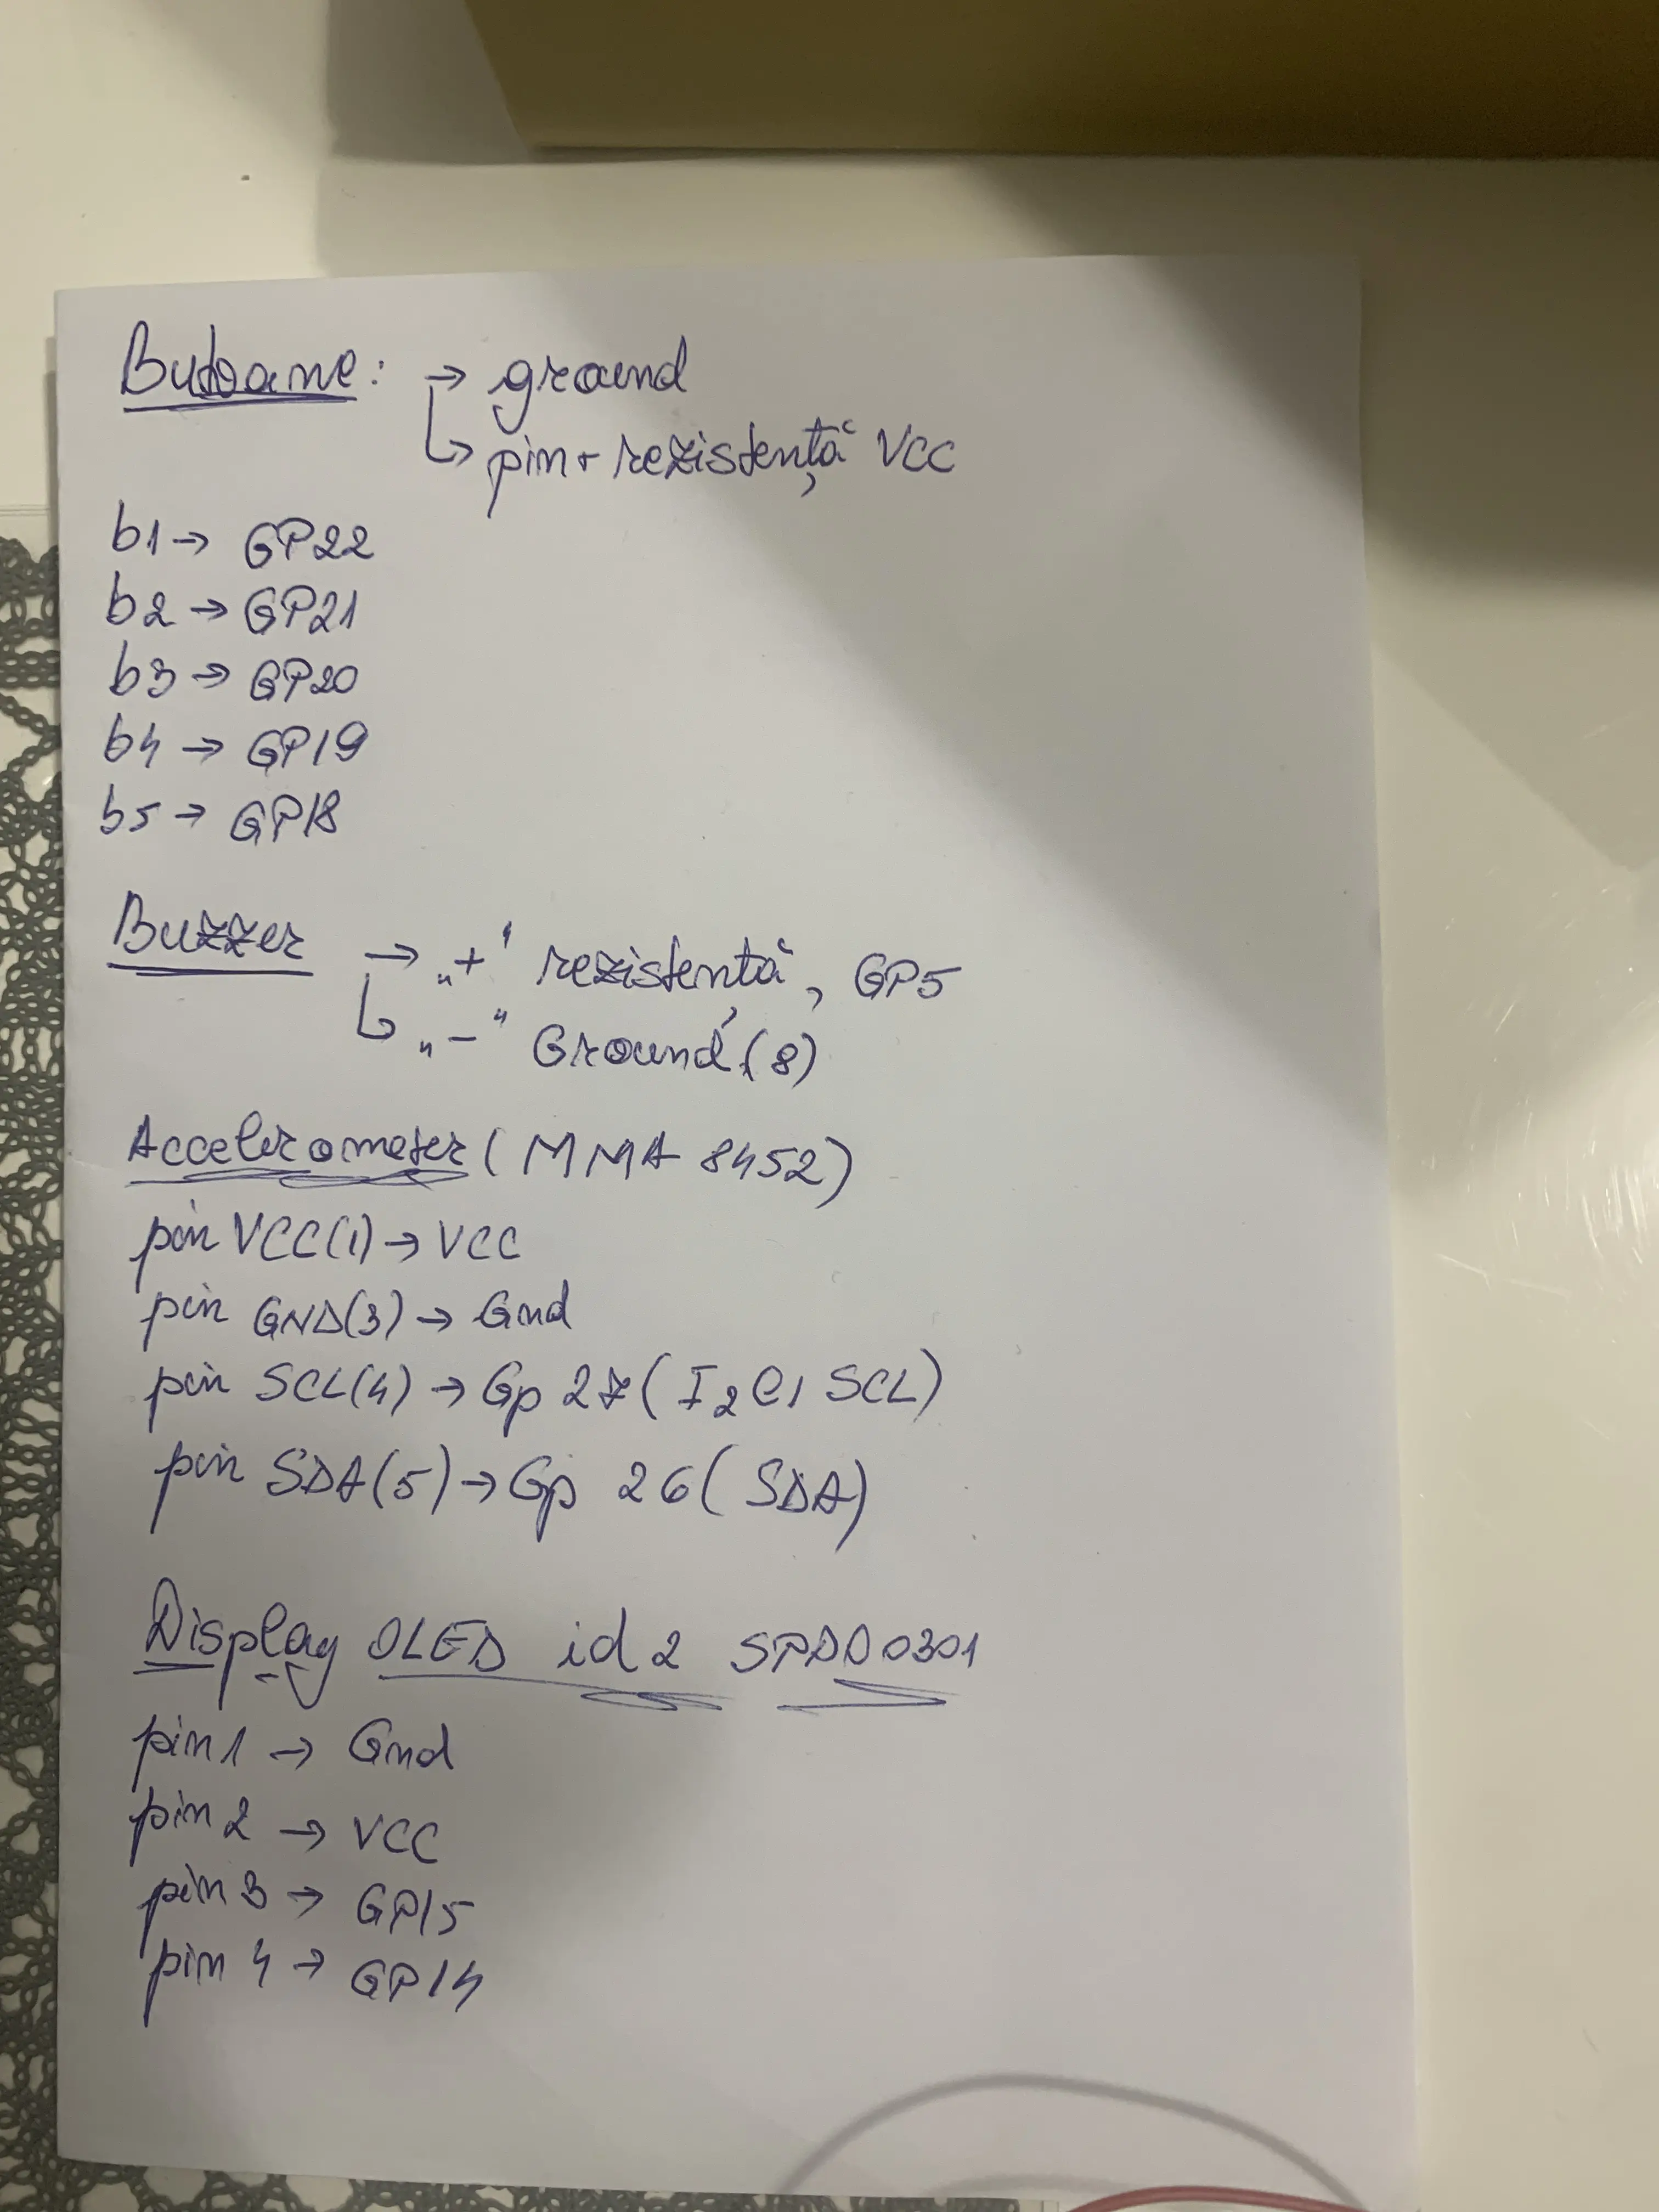 Butoane: → ground
↳ pin + rezistență VCC
b1 → GP22
b2 → GP21
b3 → GP20
b4 → GP19
b5 → GP18
Buzzer → „+" rezistență, GP5
↳ „-" Ground (8)
Accelerometer (MMA 8452)
pin VCC(1) → VCC
pin GND(3) → Gnd
pin SCL(4) → Gp 27 (I2C1 SCL)
pin SDA(5) → Gp 26 (SDA)
Display OLED id2 SPDD0301
pin1 → Gnd
pin2 → VCC
pin3 → GP15
pin 4 → GP14